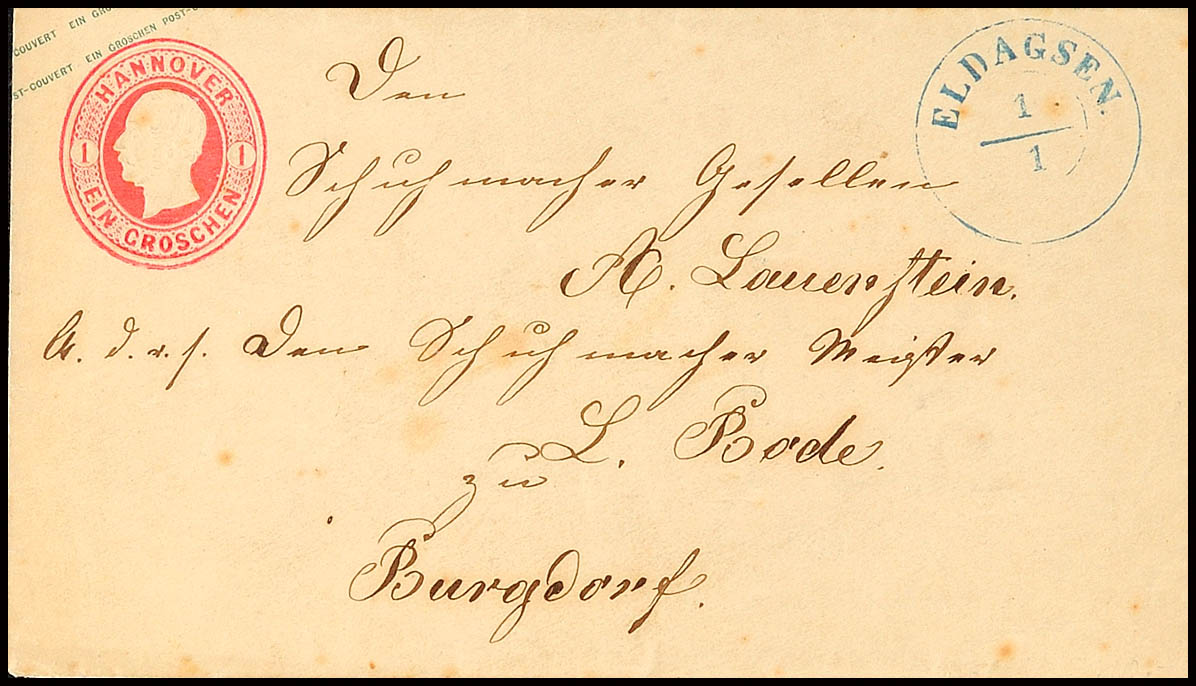 COUVERT EIN GRO
ST-COUVERT EIN GROSCHEN POST-C
HANNOVER
1 1
EIN GROSCHEN
ELDAGSEN.
1
1
Den
Schuhmacher Gesellen
A. Lauenstein.
A. d. r. s. Den Schuhmacher Meister
L. Bode.
zu
Burgdorf.